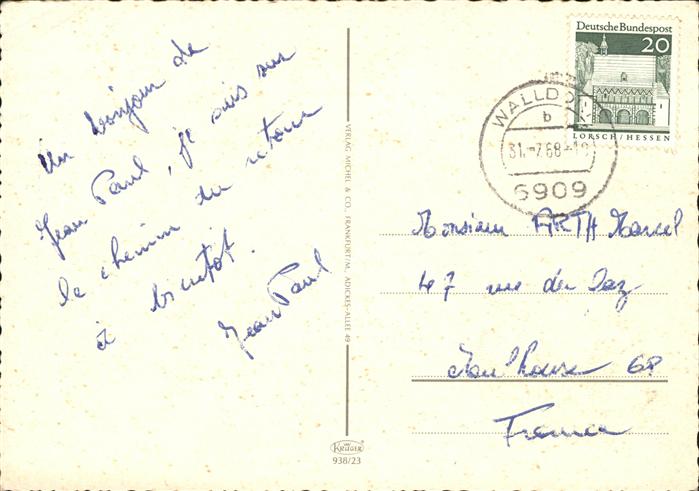 Un bonjour de
Jean Paul, je suis sur
le chemin du retour
à bientôt.
Jean Paul
VERLAG MICHEL & CO., FRANKFURT/M., ADICKES-ALLEE 49
KRÜGER
938/23
Deutsche Bundespost
20
LORSCH/HESSEN
WALLDO
b
31.-7.68-18
6909
Monsieur ARTH Marcel
47 rue du Gaz
Mulhouse 68
France